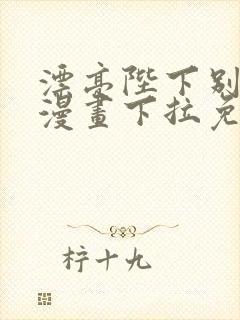 漂亮陛下别
漫畫下拉免
柠十九